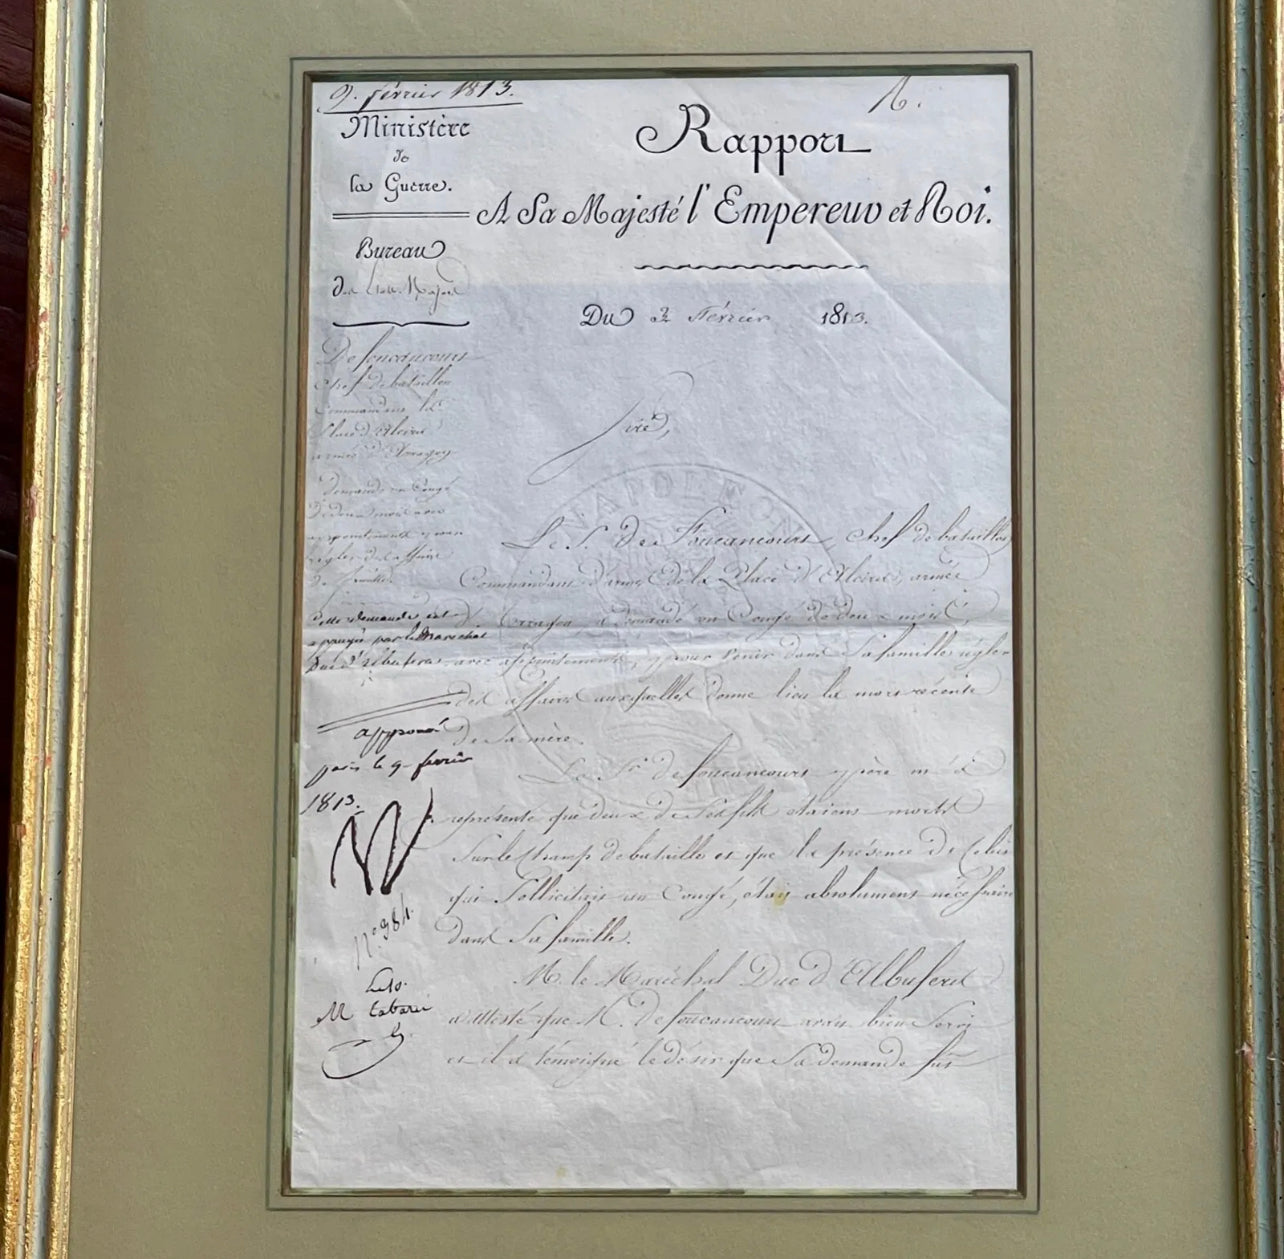 9. février 1813.
Ministère
de
la Guerre.
Bureau
de l'Etat-Major
Rapport
A Sa Majesté l'Empereur et Roi.
Du 3 Février 1813.
De foucaucourt
chef de bataillon
Commandant la
Place d'
armée d'Arragon
demande un Congé
de deux mois avec
appointemens pour
régler des affaires
de famille
Cette demande est
appuyée par le Maréchal
Duc d'Albufera
approuvé
paris le 9 fevrier
1813.
N
N° 984.
M
Sire,
NAPOLEON
Le S. De Foucaucourt, chef de bataillon
Commandant d'armes de la Place d' armée
d'Arragon, a demandé un Congé de deux mois
avec appointemens, pour venir dans sa famille régler
des affaires auxquelles donne lieu la mort récente
de sa mère.
Le Sr. de foucaucourt père m'a
représenté que deux de Ses fils etaient morts
Sur le Champ de bataille et que la présence de Celui
qui Sollicitait un Congé, était absolument nécessaire
dans Sa famille.
M. le Maréchal Duc d'Albufera
atteste que M. De foucaucourt a bien Servi
et il a témoigné le désir que Sa demande fut